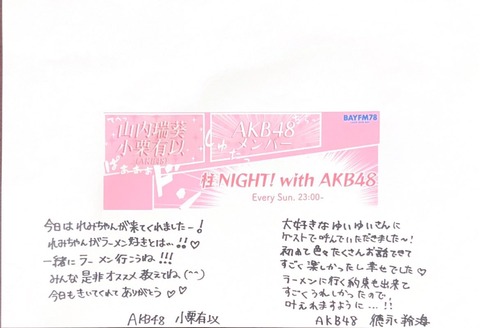 山内瑞葵
小栗有以
(AKB48)
AKB48
メンバー
BAYFM78
柱NIGHT! with AKB48
Every Sun. 23:00-
今日はれみちゃんが来てくれましたー!
れみちゃんがラーメン好きとは…!!♡
一緒にラーメン行こうね!!!
みんな是非オススメ教えてね(^^)
今日もきいてくれてありがとう♡
AKB48 小栗有以
大好きなゆいゆいさんに
ゲストで呼んでいただきました〜!
初めて色々たくさんお話できて
すごく楽しかったし幸せでした♡
ラーメンに行く約束も出来て
すごくうれしかったので、
叶えれますように…!!
AKB48 徳永羚海